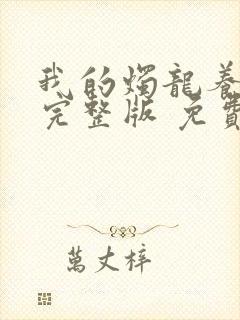 我的燭龍養
完整版 免費
萬丈梓